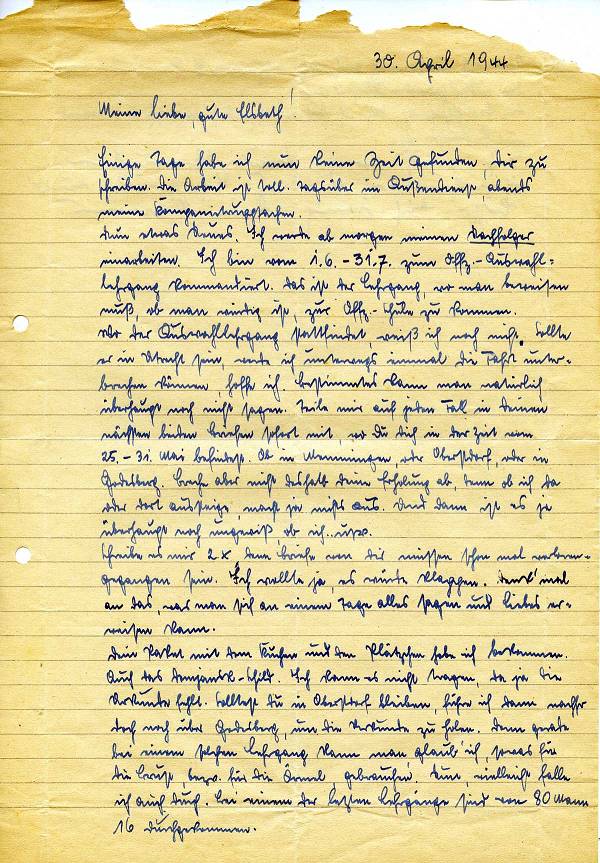 30. April 1944
Meine liebe, gute Elsbeth!
Einige Tage habe ich nun keine Zeit gefunden, Dir zu
schreiben. Die Arbeit ist toll. Tagsüber im Außendienst, abends
meine
Nun etwas Neues. Ich werde ab morgen meinen Nachfolger
einarbeiten. Ich bin vom 1.6. – 31.7. zum Offz.-Auswahl-
lehrgang kommandiert. Das ist der Lehrgang, wo man beweisen
muß, ob man würdig ist, zur Offz.-Schule zu kommen.
Wo der Auswahllehrgang stattfindet, weiß ich noch nicht. Sollte
er in Utrecht sein, werde ich unterwegs einmal die Fahrt unter-
brechen können, hoffe ich. Bestimmtes kann man natürlich
überhaupt noch nicht sagen. Teile mir auf jeden Fall in Deinen
nächsten beiden Briefen sofort mit, wo Du Dich in der Zeit vom
25. – 31. Mai befindest. Ob in Memmingen oder Oberstdorf, oder in
Godesberg. Breche aber nicht deshalb Deine Erholung ab, denn ob ich da
oder dort aussteige, macht ja nichts aus. Und dann ist es ja
überhaupt noch ungewiß, ob ich.. usw.
Schreibe es mir 2x denn Briefe von Dir müssen schon mal verloren-
gegangen sein. Ich wollte ja, es würde klappen. Denk' mal
an das, was man sich an einem Tage alles sagen und liebes er-
weisen kann.
Dein Paket mit dem Kuchen und den Plätzchen habe ich bekommen.
Auch das Demjansk-Schild. Ich kann es nicht tragen, da ja die
Urkunde fehlt. Solltest Du in Oberstdorf bleiben, führe ich dann nachher
doch noch über Godesberg, um die Urkunde zu holen. Denn gerade
bei einem solchen Lehrgang kann man, glaub' ich, sowas für
die Brust bezw. für die Ärmel gebrauchen. Nun, vielleicht falle
ich auch durch. Bei einem der letzten Lehrgänge sind von 80 Mann
16 durchgekommen.